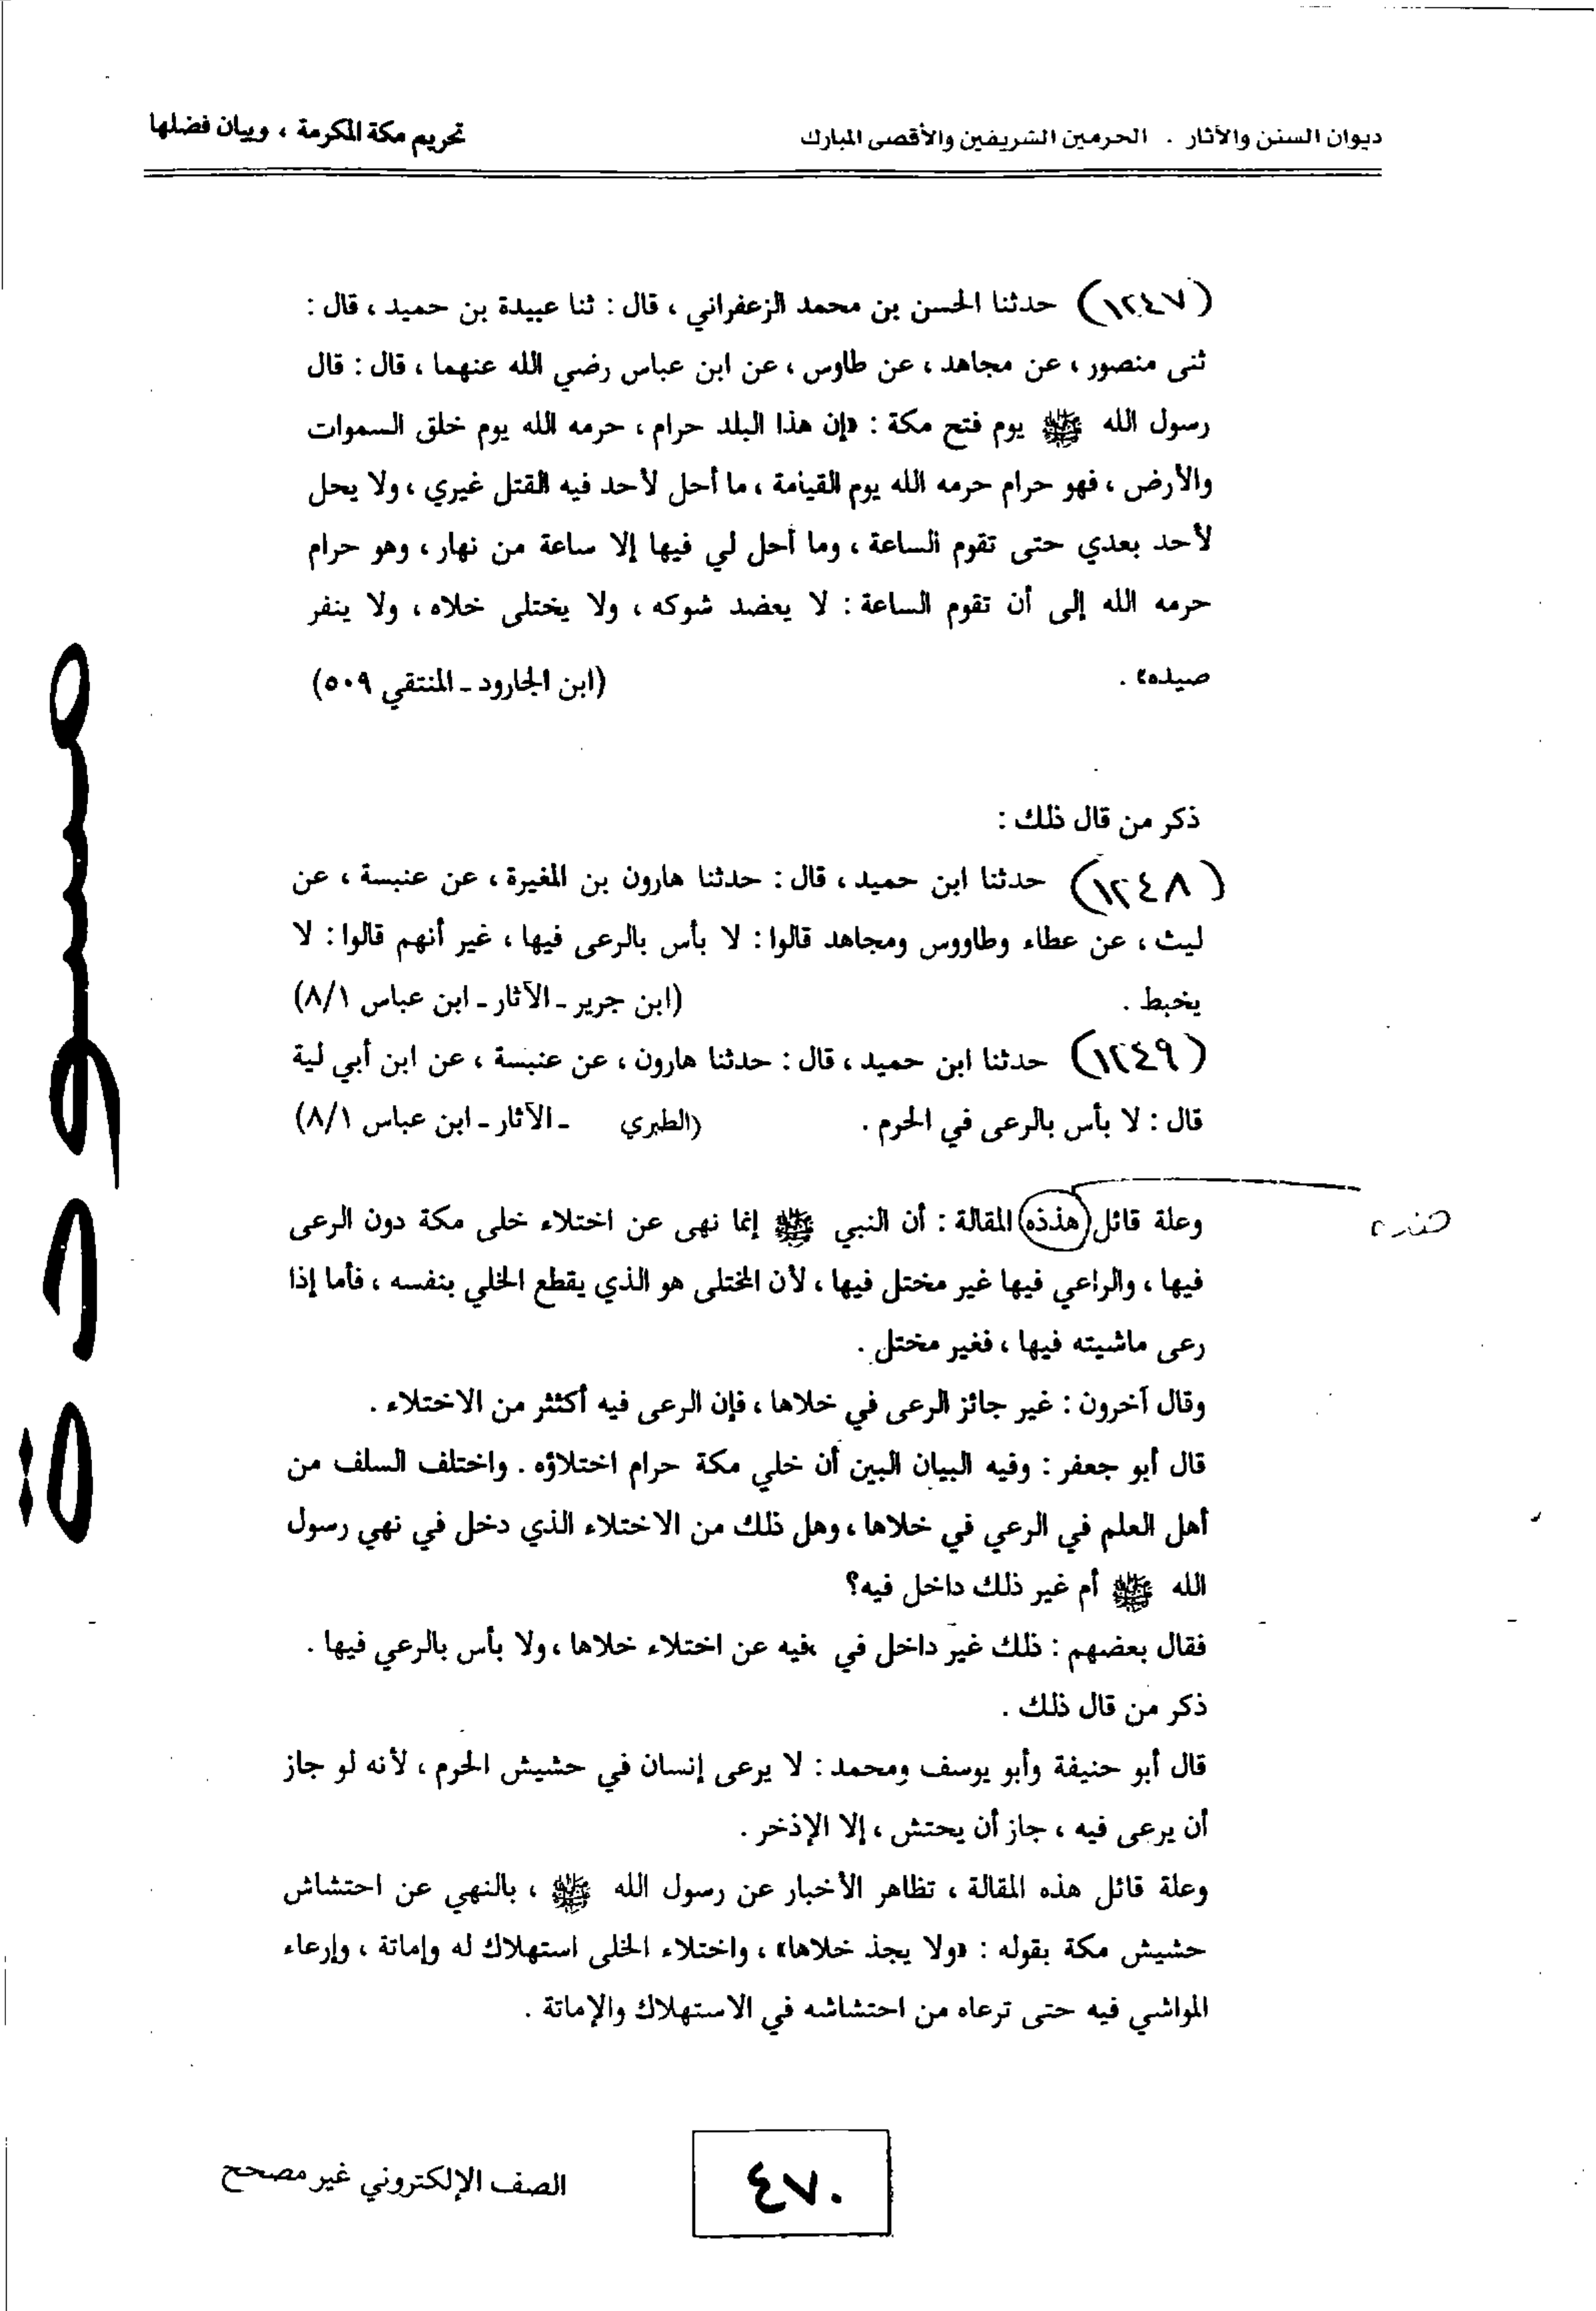 ديوان السنن والآثار . الحرمين الشريفين والأقصى المبارك
تحريم مكة المكرمة ، وبيان فضلها
(١٢٤٧) حدثنا الحسن بن محمد الزعفراني ، قال : ثنا عبيدة بن حميد ، قال :
ثنى منصور ، عن مجاهد ، عن طاوس ، عن ابن عباس رضي الله عنهما ، قال : قال
رسول الله ﷺ يوم فتح مكة : «إن هذا البلد حرام ، حرمه الله يوم خلق السموات
والأرض ، فهو حرام حرمه الله يوم القيامة ، ما أحل لأحد فيه القتل غيري ، ولا يحل
لأحد بعدي حتى تقوم الساعة ، وما أحل لي فيها إلا ساعة من نهار ، وهو حرام
حرمه الله إلى أن تقوم الساعة : لا يعضد شوكه ، ولا يختلى خلاه ، ولا ينفر
صيده» . (ابن الجارود ـ المنتقي ٥٠٩)
ذكر من قال ذلك :
(١٢٤٨) حدثنا ابن حميد ، قال : حدثنا هارون بن المغيرة ، عن عنبسة ، عن
ليث ، عن عطاء وطاووس ومجاهد قالوا : لا بأس بالرعى فيها ، غير أنهم قالوا : لا
يخبط . (ابن جرير ـ الآثار ـ ابن عباس ٨/١)
(١٢٤٩) حدثنا ابن حميد ، قال : حدثنا هارون ، عن عنبسة ، عن ابن أبي لية
قال : لا بأس بالرعى في الحرم . (الطبري ـ الآثار ـ ابن عباس ٨/١)
وعلة قائل هذذه المقالة : أن النبي ﷺ إنما نهى عن اختلاء خلى مكة دون الرعى
فيها ، والراعي فيها غير مختل فيها ، لأن المختلى هو الذي يقطع الخلي بنفسه ، فأما إذا
رعى ماشيته فيها ، فغير مختل .
وقال آخرون : غير جائز الرعى في خلاها ، فإن الرعى فيه أكثثر من الاختلاء .
قال أبو جعفر : وفيه البيان البين أن خلي مكة حرام اختلاؤه . واختلف السلف من
أهل العلم في الرعي في خلاها ، وهل ذلك من الاختلاء الذي دخل في نهي رسول
الله ﷺ أم غير ذلك داخل فيه؟
فقال بعضهم : ذلك غير داخل في فيه عن اختلاء خلاها ، ولا بأس بالرعي فيها .
ذكر من قال ذلك .
قال أبو حنيفة وأبو يوسف ومحمد : لا يرعى إنسان في حشيش الحرم ، لأنه لو جاز
أن يرعى فيه ، جاز أن يحتش ، إلا الإذخر .
وعلة قائل هذه المقالة ، تظاهر الأخبار عن رسول الله ﷺ ، بالنهي عن احتشاش
حشيش مكة بقوله : «ولا يجذ خلاها» ، واختلاء الخلى استهلاك له وإماتة ، وإرعاء
المواشي فيه حتى ترعاه من احتشاشه في الاستهلاك والإماتة .
مسودة
٤٧٠
الصف الإلكتروني غير مصحح